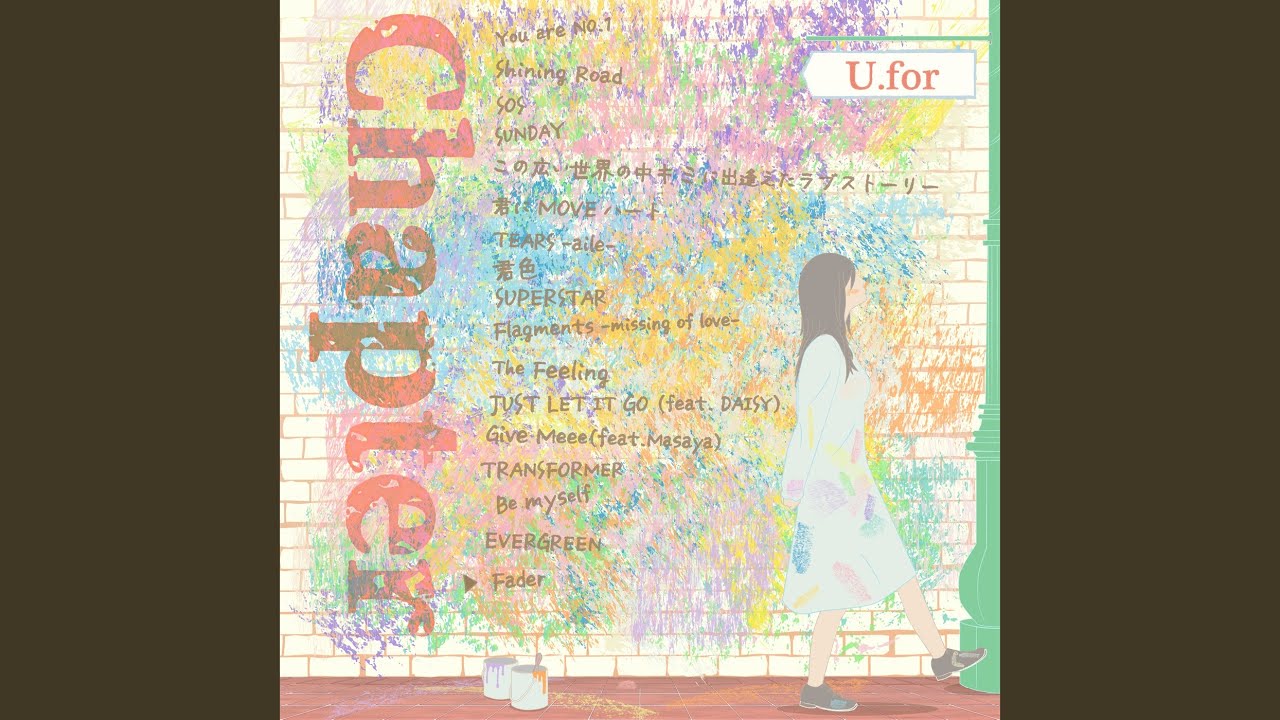 Chapter
U.for
You are NO.1
Shining Road
SOS
SUNDAY
この広い世界の中キミに出逢えたラブストーリー
君に MOVE ハート
TEARS -aile-
君色
SUPERSTAR
Flagments -missing of love-
The Feeling
JUST LET IT GO (feat. DAISY)
Give Meee(feat.Masaya)
TRANSFORMER
Be myself
EVERGREEN
Fader